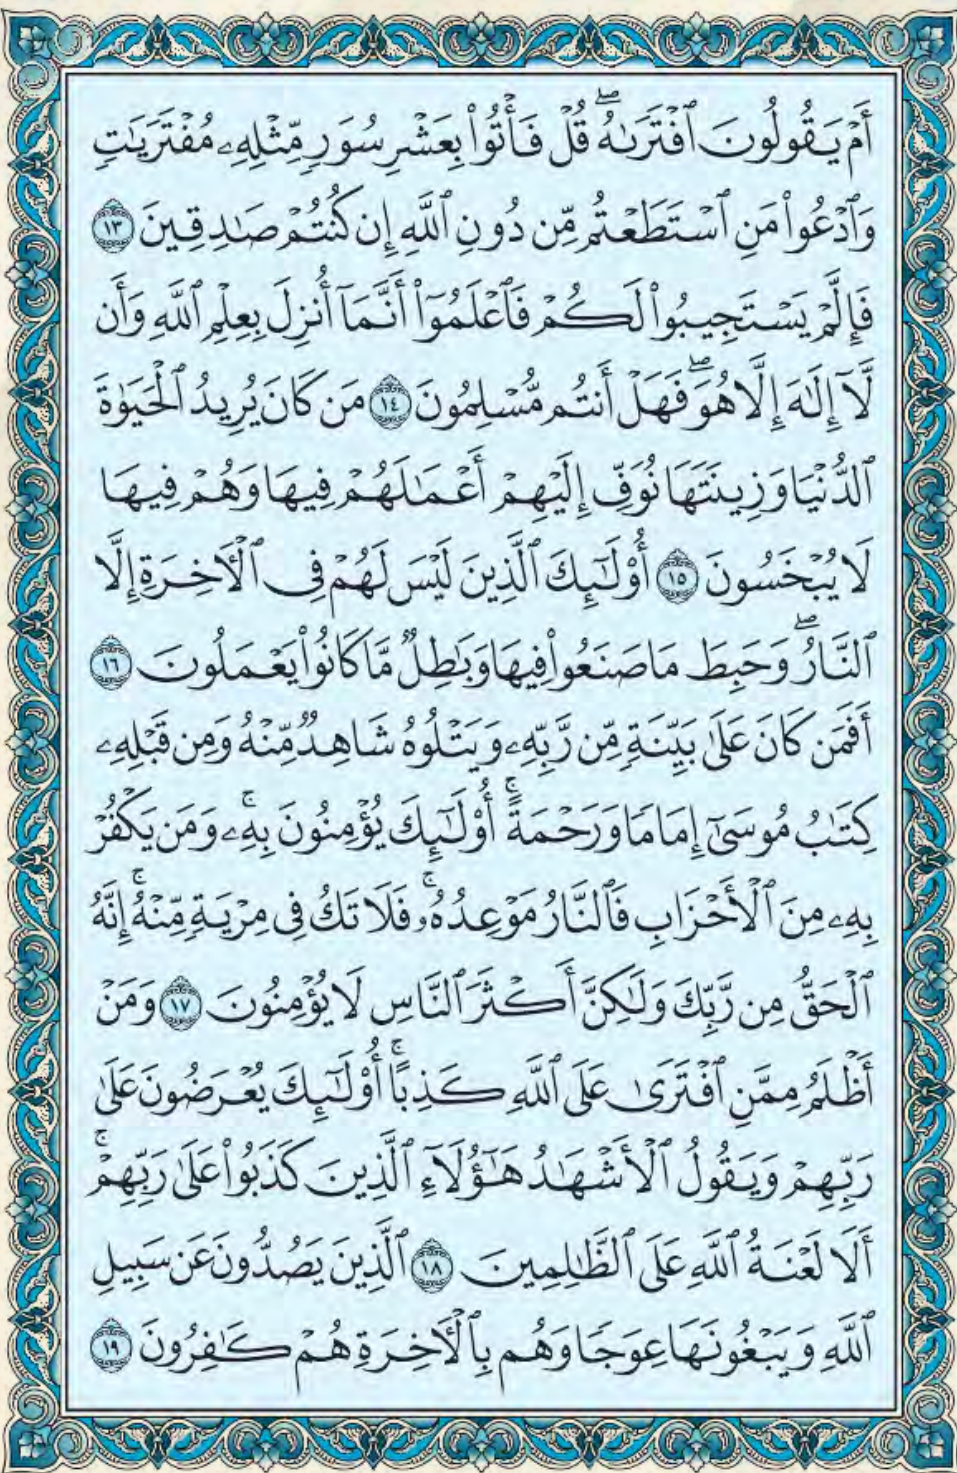 أَمْ يَقُولُونَ ٱفْتَرَىٰهُۖ قُلْ فَأْتُوا۟ بِعَشْرِ سُوَرٍ مِّثْلِهِۦ مُفْتَرَيَٰتٍ
وَٱدْعُوا۟ مَنِ ٱسْتَطَعْتُم مِّن دُونِ ٱللَّهِ إِن كُنتُمْ صَٰدِقِينَ ١٣
فَإِلَّمْ يَسْتَجِيبُوا۟ لَكُمْ فَٱعْلَمُوٓا۟ أَنَّمَآ أُنزِلَ بِعِلْمِ ٱللَّهِ وَأَن
لَّآ إِلَٰهَ إِلَّا هُوَۖ فَهَلْ أَنتُم مُّسْلِمُونَ ١٤ مَن كَانَ يُرِيدُ ٱلْحَيَوٰةَ
ٱلدُّنْيَا وَزِينَتَهَا نُوَفِّ إِلَيْهِمْ أَعْمَٰلَهُمْ فِيهَا وَهُمْ فِيهَا
لَا يُبْخَسُونَ ١٥ أُو۟لَٰٓئِكَ ٱلَّذِينَ لَيْسَ لَهُمْ فِى ٱلْءَاخِرَةِ إِلَّا
ٱلنَّارُۖ وَحَبِطَ مَا صَنَعُوا۟ فِيهَا وَبَٰطِلٌ مَّا كَانُوا۟ يَعْمَلُونَ ١٦
أَفَمَن كَانَ عَلَىٰ بَيِّنَةٍ مِّن رَّبِّهِۦ وَيَتْلُوهُ شَاهِدٌ مِّنْهُ وَمِن قَبْلِهِۦ
كِتَٰبُ مُوسَىٰٓ إِمَامًا وَرَحْمَةًۚ أُو۟لَٰٓئِكَ يُؤْمِنُونَ بِهِۦۚ وَمَن يَكْفُرْ
بِهِۦ مِنَ ٱلْأَحْزَابِ فَٱلنَّارُ مَوْعِدُهُۥۚ فَلَا تَكُ فِى مِرْيَةٍ مِّنْهُۚ إِنَّهُ
ٱلْحَقُّ مِن رَّبِّكَ وَلَٰكِنَّ أَكْثَرَ ٱلنَّاسِ لَا يُؤْمِنُونَ ١٧ وَمَنْ
أَظْلَمُ مِمَّنِ ٱفْتَرَىٰ عَلَى ٱللَّهِ كَذِبًاۚ أُو۟لَٰٓئِكَ يُعْرَضُونَ عَلَىٰ
رَبِّهِمْ وَيَقُولُ ٱلْأَشْهَٰدُ هَٰٓؤُلَآءِ ٱلَّذِينَ كَذَبُوا۟ عَلَىٰ رَبِّهِمْۚ
أَلَا لَعْنَةُ ٱللَّهِ عَلَى ٱلظَّٰلِمِينَ ١٨ ٱلَّذِينَ يَصُدُّونَ عَن سَبِيلِ
ٱللَّهِ وَيَبْغُونَهَا عِوَجًا وَهُم بِٱلْءَاخِرَةِ هُمْ كَٰفِرُونَ ١٩